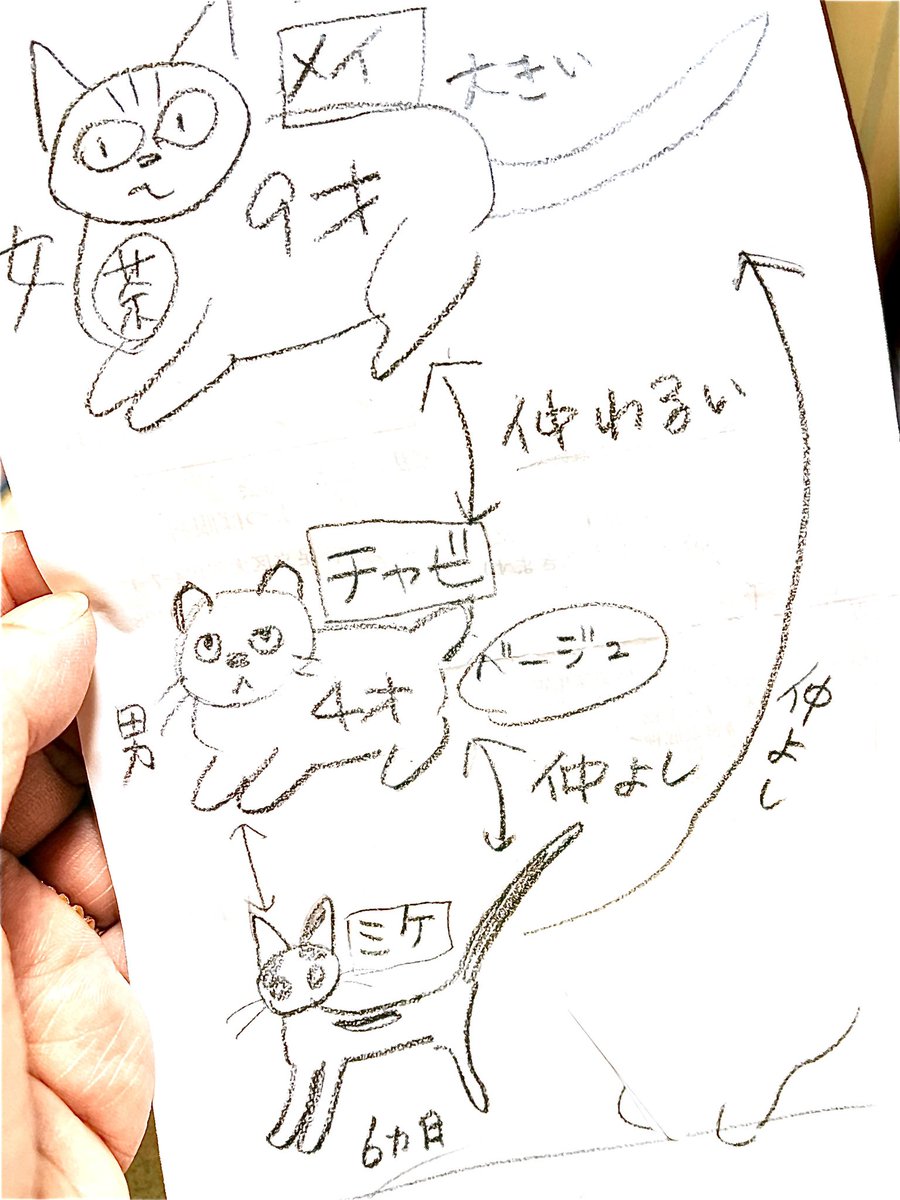 メイ
大きい
9才
女
茶
仲わるい
チャビ
ベージュ
4才
男
仲よし
仲よし
ミケ
6カ月